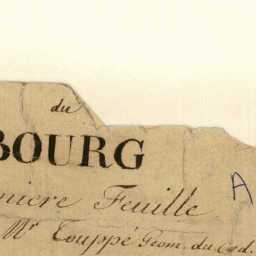 du
BOURG
niere Feuille
A
Mr Couppé Geom. du Cad.